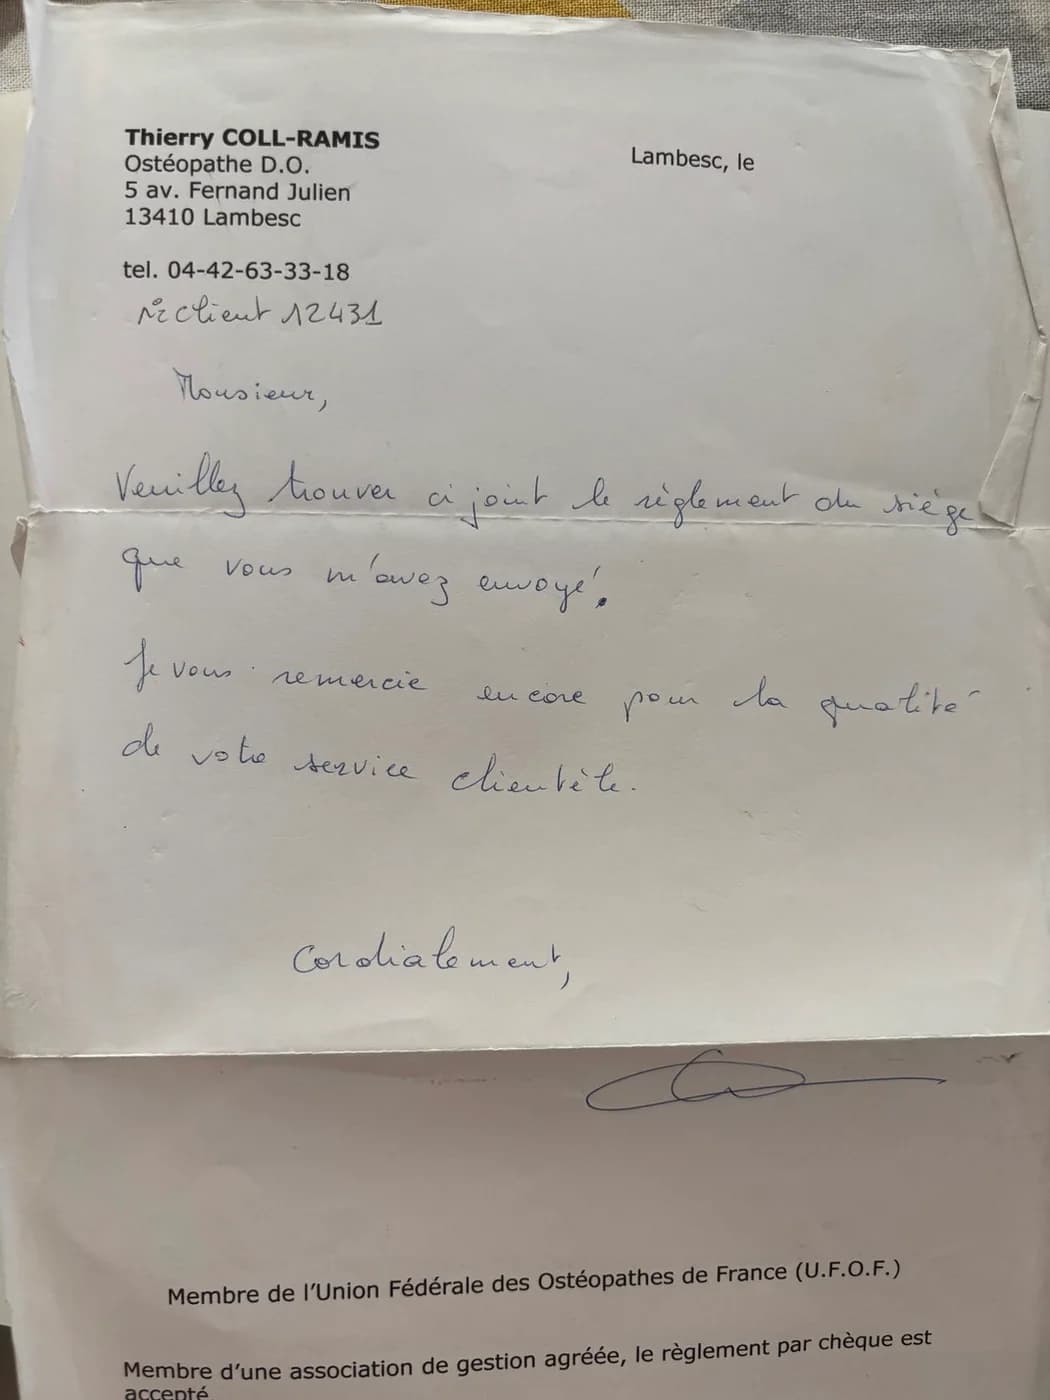 Thierry COLL-RAMIS
Ostéopathe D.O.
5 av. Fernand Julien
13410 Lambesc
Lambesc, le
tel. 04-42-63-33-18
n° client 12431
Monsieur,
Veuillez trouver ci joint le règlement du siège
que vous m'avez envoyé.
Je vous remercie encore pour la qualité
de votre service clientèle.
Cordialement,
Membre de l'Union Fédérale des Ostéopathes de France (U.F.O.F.)
Membre d'une association de gestion agréée, le règlement par chèque est
accepté